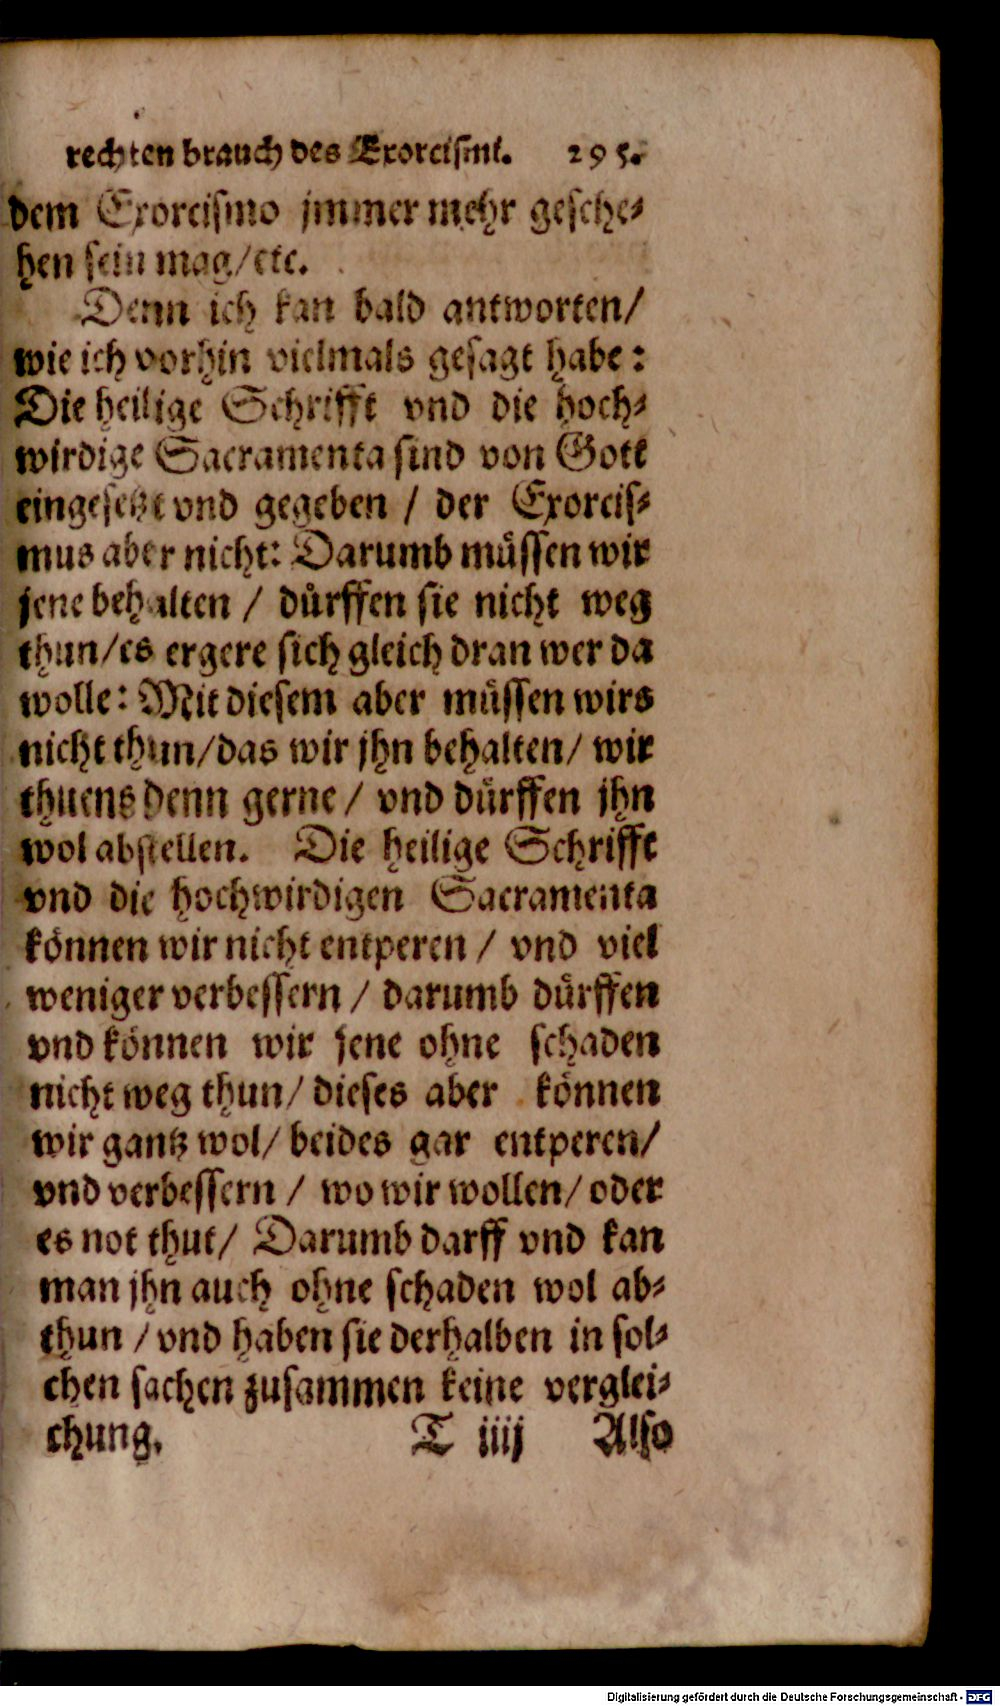 rechten brauch des Exorcismi. 295.
dem Exorcismo jmmer mehr gesche⸗
hen sein mag/etc.
Denn ich kan bald antworten/
wie ich vorhin vielmals gesagt habe:
Die heilige Schrifft vnd die hoch⸗
wirdige Sacramenta sind von Gott
eingesetzt vnd gegeben / der Exorcis⸗
mus aber nicht: Darumb müssen wir
jene behalten / dürffen sie nicht weg
thun/es ergere sich gleich dran wer da
wolle: Mit diesem aber müssen wirs
nicht thun/das wir jhn behalten/ wir
thuens denn gerne / vnd dürffen jhn
wol abstellen. Die heilige Schrifft
vnd die hochwirdigen Sacramenta
können wir nicht entperen / vnd viel
weniger verbessern / darumb dürffen
vnd können wir jene ohne schaden
nicht weg thun/ dieses aber können
wir gantz wol/ beides gar entperen/
vnd verbessern / wo wir wollen/ oder
es not thut/ Darumb darff vnd kan
man jhn auch ohne schaden wol ab⸗
thun / vnd haben sie derhalben in sol⸗
chen sachen zusammen keine verglei⸗
chung. T iiij Also
Digitalisierung gefördert durch die Deutsche Forschungsgemeinschaft - DFG